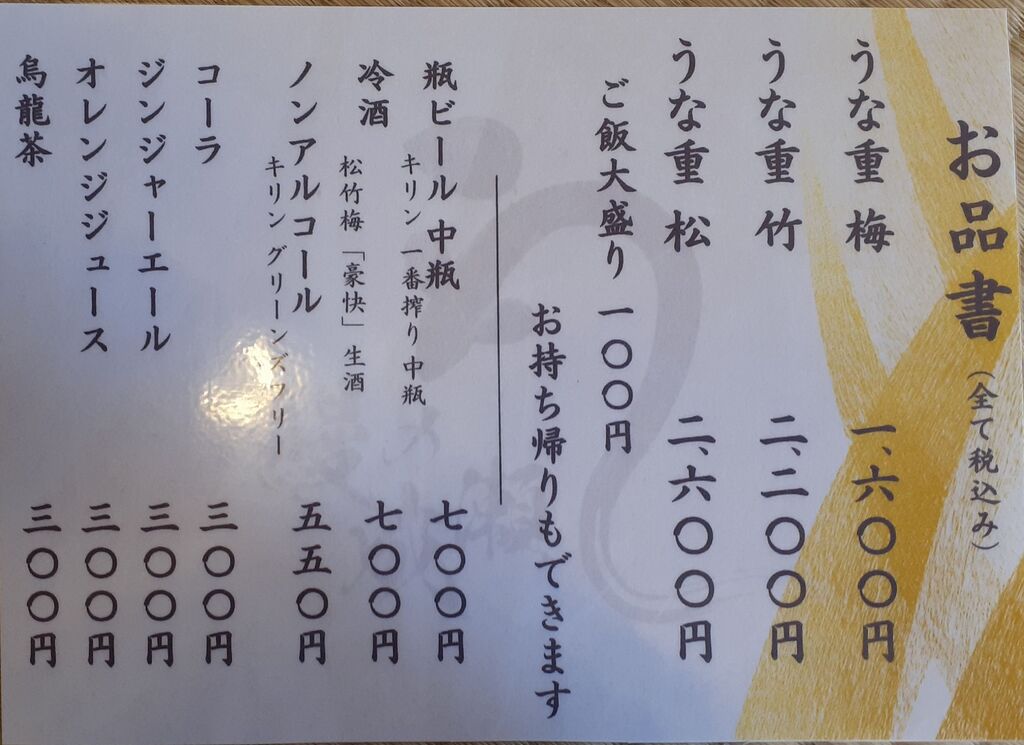 お品書（全て税込み）
うな重 梅 一、六〇〇円
うな重 竹 二、二〇〇円
うな重 松 二、六〇〇円
ご飯大盛り 一〇〇円
お持ち帰りもできます
瓶ビール 中瓶 七〇〇円
キリン 一番搾り 中瓶
冷酒 七〇〇円
松竹梅「豪快」生酒
ノンアルコール 五五〇円
キリン グリーンズフリー
コーラ 三〇〇円
ジンジャーエール 三〇〇円
オレンジジュース 三〇〇円
烏龍茶 三〇〇円